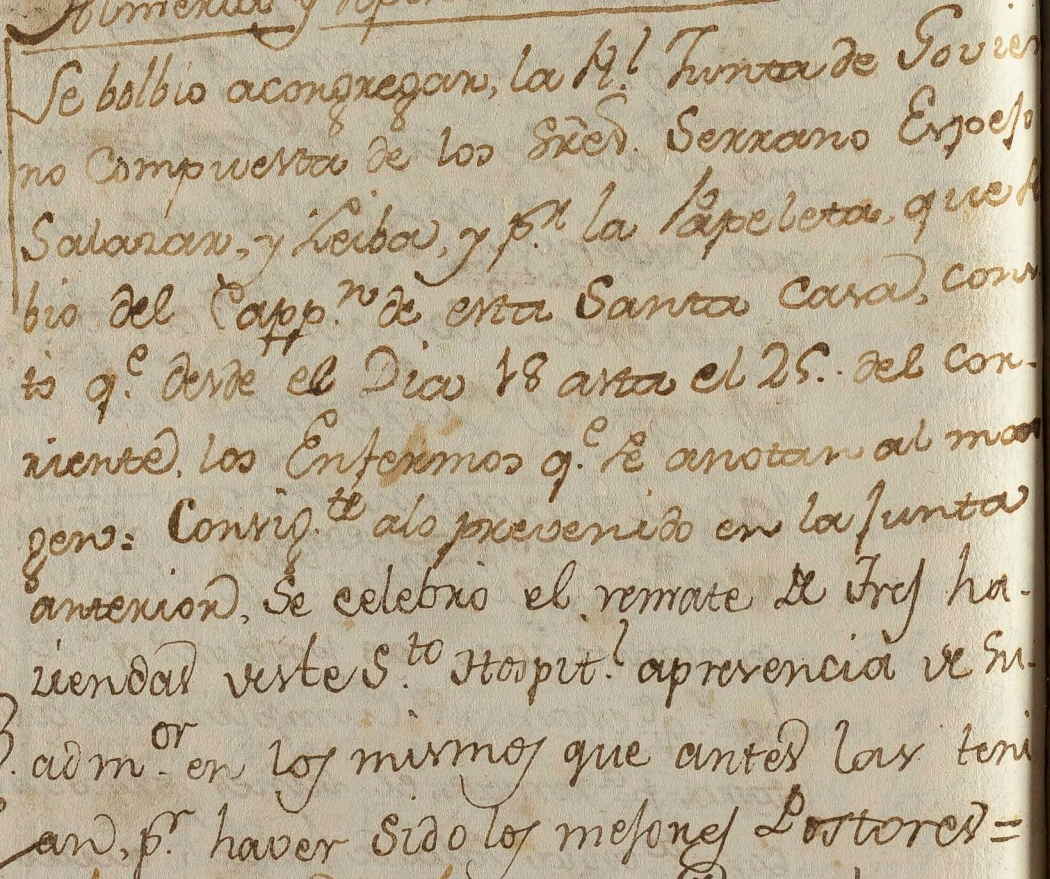 Almeria y
Se bolbio acongregar, la Rl. Junta de Govier
no Compuesta de los Sres. Serrano Espejo
Salazar, y Leiba, y pr. la Papeleta, que
bio del Cappn. de esta Santa Casa, cons
to qe. desde el Dia 18 asta el 25.. del Cor-
riente, los Enfermos qe. se anotan al mar
gen= Consigte. alo prevenido en la Junta
anterior, Se celebrò el remate de tres ha-
ziendas deste Sto. Hospitl. apresencia de su
admor. en los mismos que antes las teni
an, pr. haver Sido los mejores Postores=